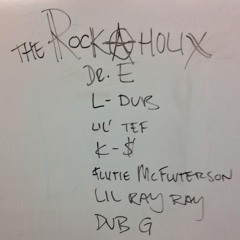 THE ROCKAHOLIX
DR. E
L-DUB
LIL' TEF
K-$
FLUTIE MCFLUTERSON
LIL RAY RAY
DUB G